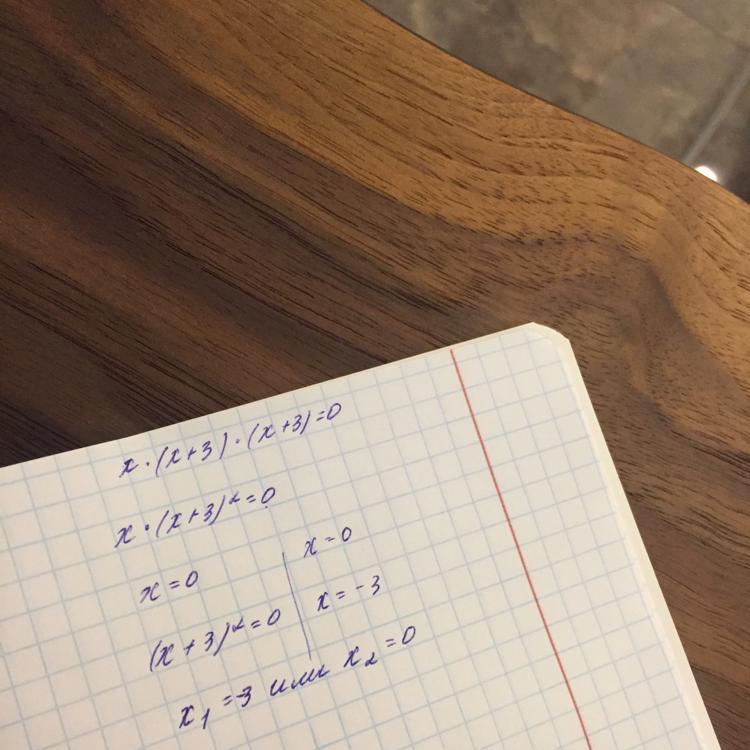 x·(x+3)·(x+3)=0
x·(x+3)²=0
x=0 | x=0
(x+3)²=0 | x=-3
x₁=-3 или x₂=0